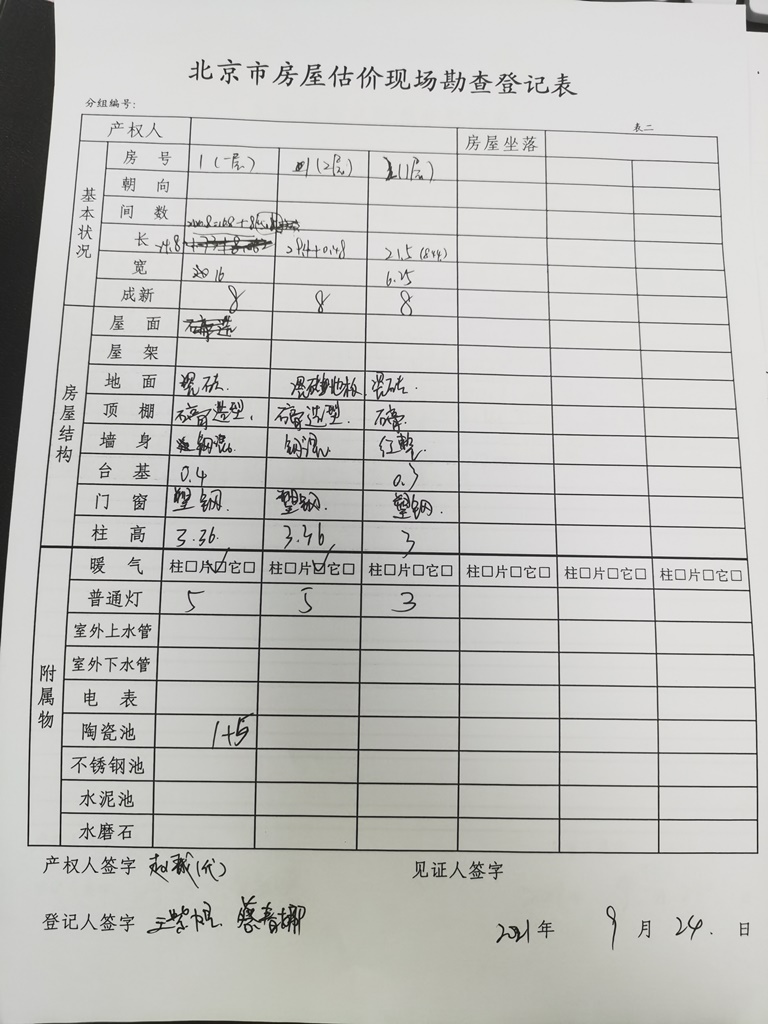 北京市房屋估价现场勘查登记表
分组编号:
表二
产权人 房屋坐落
基本状况
房号 1(一层) 1(2层) (1层)
朝向
间数
长 29.4+0.48 21.5(8.44)
宽 16 6.25
成新 8 8 8
房屋结构
屋面
屋架
地面 瓷砖. 瓷砖地板. 瓷砖.
顶棚 石膏造型. 石膏造型. 石膏.
墙身 钢混. 钢混. 红整
台基 0.4 0.3
门窗 塑钢. 塑钢. 塑钢.
柱高 3.36. 3.36 3
附属物
暖气 柱□片☑它□ 柱□片☑它□ 柱□片□它□ 柱□片□它□ 柱□片□它□ 柱□片□它□
普通灯 5 5 3
室外上水管
室外下水管
电表
陶瓷池 1+5
不锈钢池
水泥池
水磨石
产权人签字 (代) 见证人签字
登记人签字
2021年 9月 24. 日